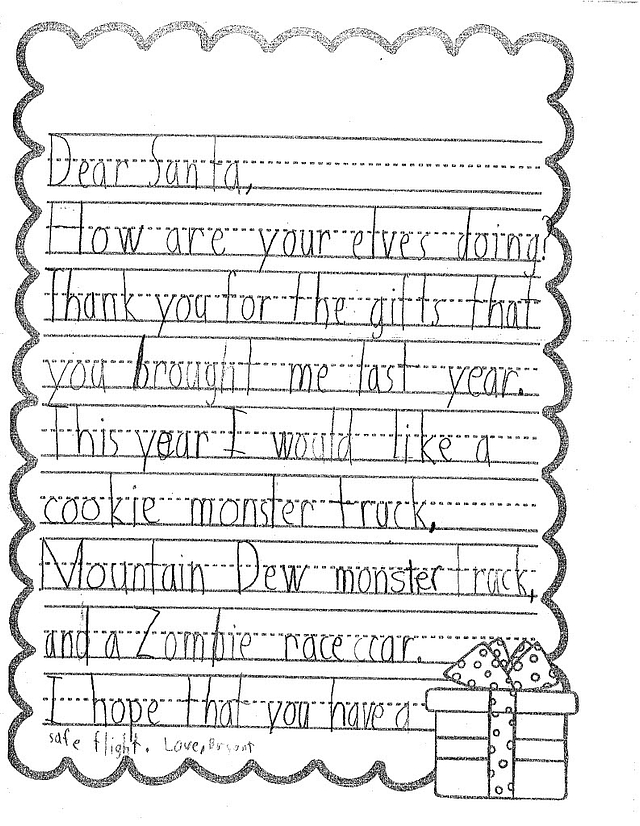 Dear Santa,
How are your elves doing?
Thank you for the gifts that
you brought me last year.
This year I would like a
cookie monster truck,
Mountain Dew monster truck,
and a Zombie raceccar.
I hope that you have a
safe flight. Love,